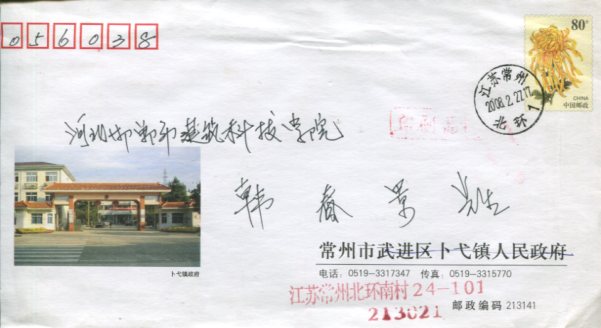 056038
80分
CHINA
中国邮政
江苏常州
2008.2.27.17
北环1
河北邯郸市建筑科技学院
韩 春 景 先生
卜弋镇政府
常州市武进区卜弋镇人民政府
电话：0519-3317347 传真：0519-3315770
江苏常州北环南村24-101
213021
邮政编码 213141